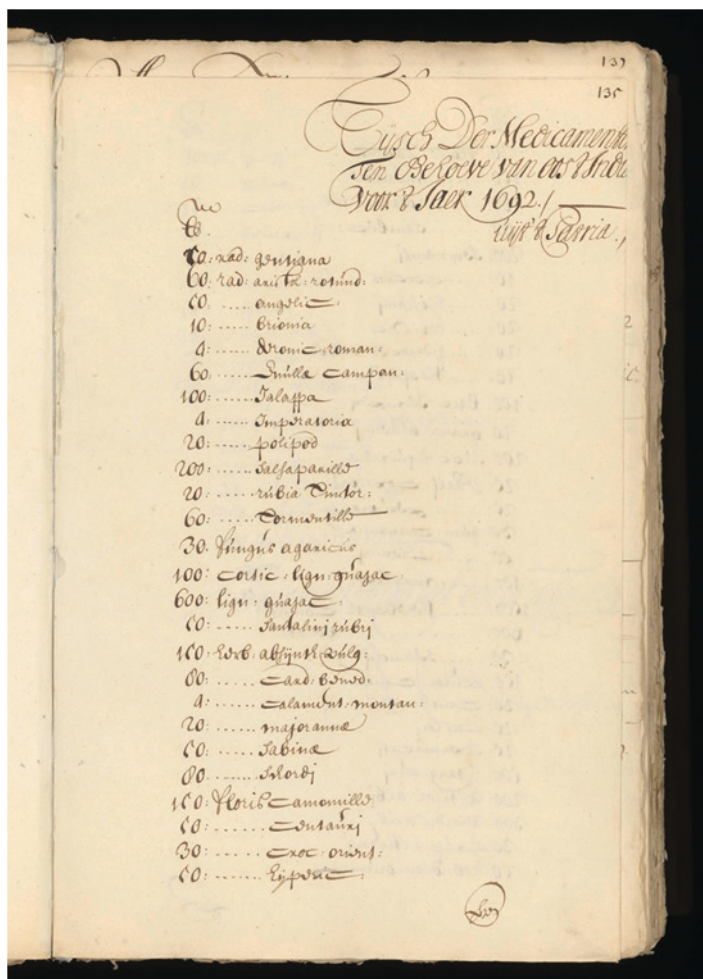 137
135
Lijsch Der Medicament
Ten Behoeve van oost Indie
Voor 't Jaer 1692./
uijt 't Patria.,
No
lb.
50: rad: gentiana
60: rad: aristo: rotund:
50: ..... angelic:
10: ..... brionia
4: ..... doronic roman:
60: ..... Enúllæ Campan:
100: ..... Jalappa
4: ..... Imperatoria
20: ..... polipod
200: ..... salsaparille
20: ..... rúbia Tinctor:
60: ..... Tormentille
30. fúngús agaricús
100: cortic: lign: gúajac
600: lign: gúajac:
50: ..... santalinj rúbrj
150: herb: absijnth vúlg:
80: ..... Card: bened:
4: ..... calament: montan:
20: ..... majorannæ
50: ..... sabinæ
80: ..... scordj
150: floris Camomille
50: ..... Centaúrj
30: ..... Croc: orient:
50: ..... hijperic: